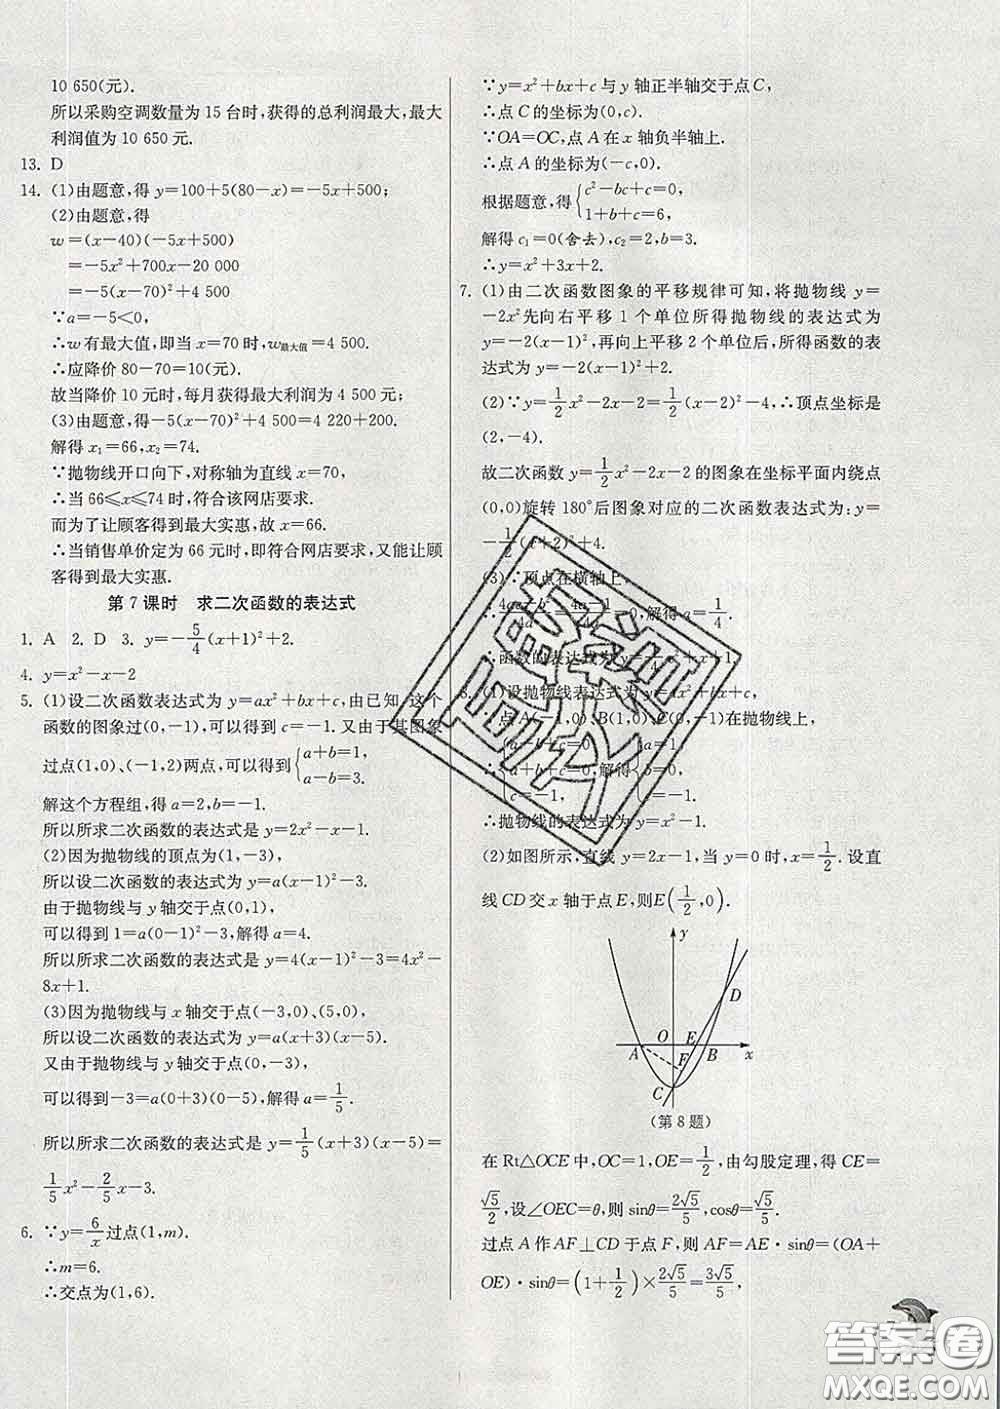 10 650(元).
所以采购空调数量为 15 台时,获得的总利润最大,最大
利润值为 10 650 元.
13. D
14. (1)由题意,得 y=100+5(80-x)=-5x+500;
(2)由题意,得
w=(x-40)(-5x+500)
=-5x²+700x-20 000
=-5(x-70)²+4 500
∵a=-5<0,
∴w 有最大值,即当 x=70 时,w最大值=4 500.
∴应降价 80-70=10(元).
故当降价 10 元时,每月获得最大利润为 4 500 元;
(3)由题意,得-5(x-70)²+4 500=4 220+200.
解得 x₁=66,x₂=74.
∵抛物线开口向下,对称轴为直线 x=70,
∴当 66≤x≤74 时,符合该网店要求.
而为了让顾客得到最大实惠,故 x=66.
∴当销售单价定为 66 元时,即符合网店要求,又能让顾
客得到最大实惠.
第 7 课时 求二次函数的表达式
1. A 2. D 3. y=-5/4(x+1)²+2.
4. y=x²-x-2
5. (1)设二次函数表达式为 y=ax²+bx+c,由已知,这个
函数的图象过(0,-1),可以得到 c=-1. 又由于其图象
过点(1,0)、(-1,2)两点,可以得到{a+b=1,
a-b=3.
解这个方程组,得 a=2,b=-1.
所以所求二次函数的表达式是 y=2x²-x-1.
(2)因为抛物线的顶点为(1,-3),
所以设二次函数的表达式为 y=a(x-1)²-3.
由于抛物线与 y 轴交于点(0,1),
可以得到 1=a(0-1)²-3,解得 a=4.
所以所求二次函数的表达式是 y=4(x-1)²-3=4x²-
8x+1.
(3)因为抛物线与 x 轴交于点(-3,0)、(5,0),
所以设二次函数的表达式为 y=a(x+3)(x-5).
又由于抛物线与 y 轴交于点(0,-3),
可以得到-3=a(0+3)(0-5),解得 a=1/5.
所以所求二次函数的表达式是 y=1/5(x+3)(x-5)=
1/5x²-2/5x-3.
6. ∵y=6/x过点(1,m).
∴m=6.
∴交点为(1,6).
∵y=x²+bx+c 与 y 轴正半轴交于点 C,
∴点 C 的坐标为(0,c).
∵OA=OC,点 A 在 x 轴负半轴上.
∴点 A 的坐标为(-c,0).
根据题意,得{c²-bc+c=0,
1+b+c=6,
解得 c₁=0(舍去),c₂=2,b=3.
∴y=x²+3x+2.
7. (1)由二次函数图象的平移规律可知,将抛物线 y=
-2x²先向右平移 1 个单位所得抛物线的表达式为
y=-2(x-1)²,再向上平移 2 个单位后,所得函数的表
达式为 y=-2(x-1)²+2.
(2)∵y=1/2x²-2x-2=1/2(x-2)²-4,∴顶点坐标是
(2,-4).
故二次函数 y=1/2x²-2x-2 的图象在坐标平面内绕点
(0,0)旋转 180°后图象对应的二次函数表达式为:y=
-1/2(x+2)²+4.
(3)∵顶点在横轴上,
∴4ac-b²/4a=4a-1/4a=0,解得 a=1/4.
∴函数的表达式为 y=1/4x²+x+1.
8. (1)设抛物线表达式为 y=ax²+bx+c,
∵点 A(-1,0)、B(1,0)、C(0,-1)在抛物线上,
{a-b+c=0, {a=1,
∴{a+b+c=0,解得{b=0,
{c=-1, {c=-1.
∴抛物线的表达式为 y=x²-1.
(2)如图所示,直线 y=2x-1,当 y=0 时,x=1/2. 设直
线 CD 交 x 轴于点 E,则E(1/2,0).
y
D
A O E B x
F
C
(第 8 题)
在 Rt△OCE 中,OC=1,OE=1/2,由勾股定理,得 CE=
√5/2,设∠OEC=θ,则 sinθ=2√5/5,cosθ=√5/5.
过点 A 作 AF⊥CD 于点 F,则 AF=AE·sinθ=(OA+
OE)·sinθ=(1+1/2)×2√5/5=3√5/5,
答案卷
MXQE.COM